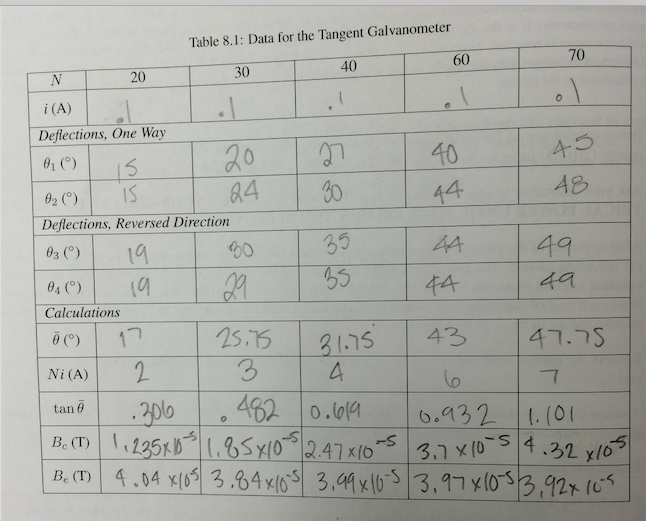 Table 8.1: Data for the Tangent Galvanometer
N 20 30 40 60 70
i (A) .1 .1 .1 .1 .1
Deflections, One Way
θ₁ (°) 15 20 27 40 45
θ₂ (°) 15 24 30 44 48
Deflections, Reversed Direction
θ₃ (°) 19 30 35 44 49
θ₄ (°) 19 29 35 44 49
Calculations
θ̄ (°) 17 25.75 31.75 43 47.75
Ni (A) 2 3 4 6 7
tan θ̄ .306 .482 0.619 0.932 1.101
B꜀ (T) 1.235x10⁻⁵ 1.85x10⁻⁵ 2.47x10⁻⁵ 3.7x10⁻⁵ 4.32x10⁻⁵
Bₑ (T) 4.04x10⁻⁵ 3.84x10⁻⁵ 3.99x10⁻⁵ 3.97x10⁻⁵ 3.92x10⁻⁵